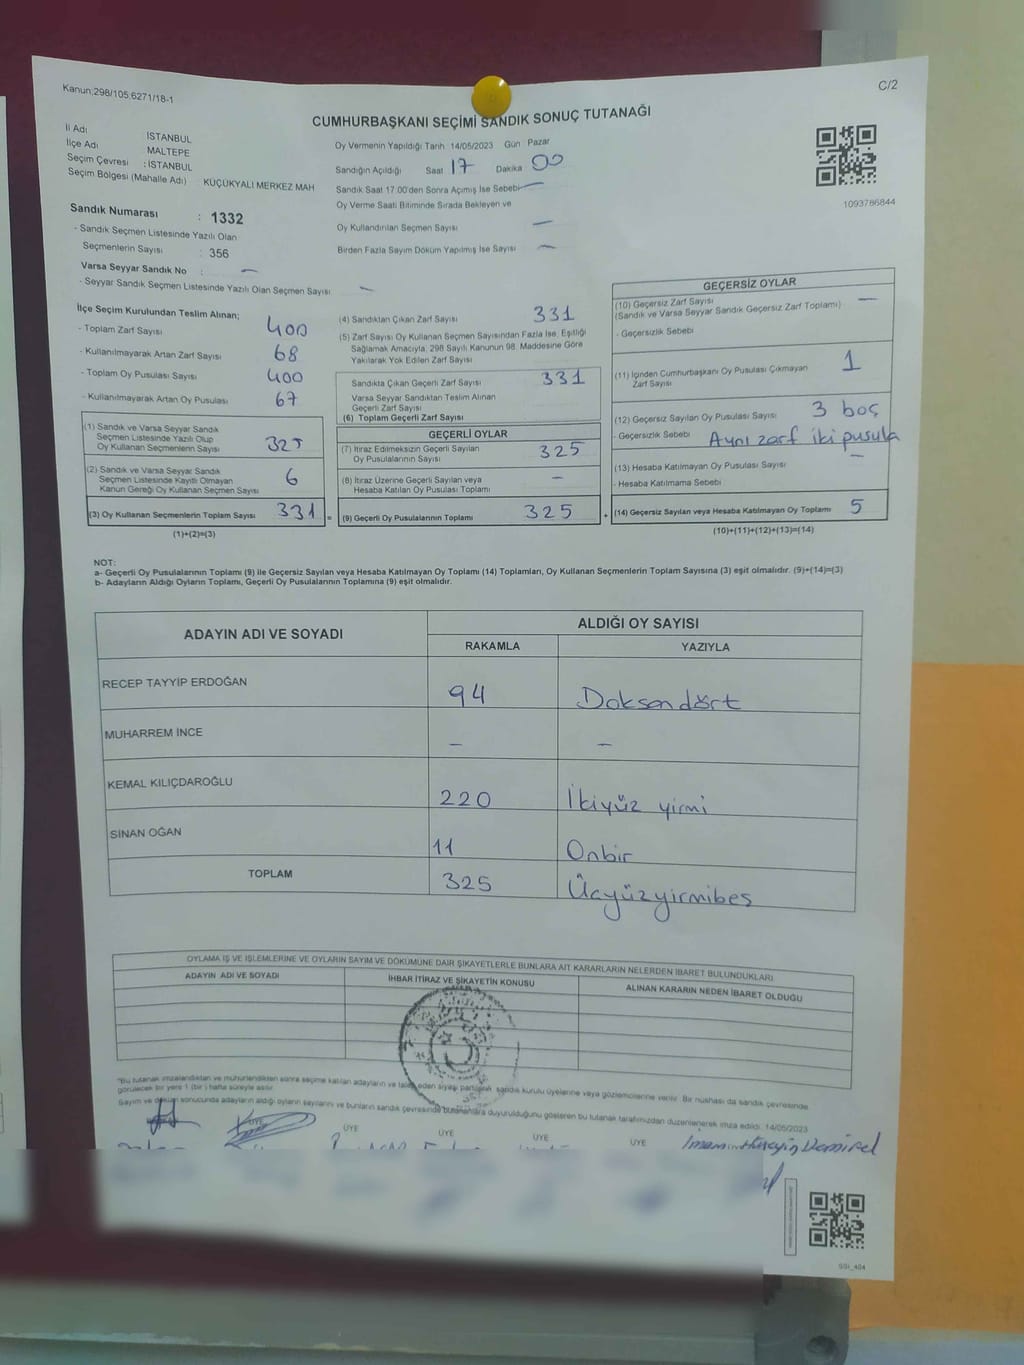 Kanun:298/105:6271/18-1
C/2
CUMHURBAŞKANI SEÇİMİ SANDIK SONUÇ TUTANAĞI
İl Adı : İSTANBUL
İlçe Adı MALTEPE
Seçim Çevresi : İSTANBUL
Seçim Bölgesi (Mahalle Adı) KÜÇÜKYALI MERKEZ MAH
Sandık Numarası : 1332
- Sandık Seçmen Listesinde Yazılı Olan
Seçmenlerin Sayısı : 356
Varsa Seyyar Sandık No : —
- Seyyar Sandık Seçmen Listesinde Yazılı Olan Seçmen Sayısı —
Oy Vermenin Yapıldığı Tarih 14/05/2023 Gün Pazar
Sandığın Açıldığı Saat 17 Dakika 00
Sandık Saat 17.00'den Sonra Açımış İse Sebebi —
Oy Verme Saati Bitiminde Sırada Bekleyen ve
Oy Kullandırılan Seçmen Sayısı —
Birden Fazla Sayım Döküm Yapılmış İse Sayısı —
1093786844
İlçe Seçim Kurulundan Teslim Alınan;
- Toplam Zarf Sayısı 400
- Kullanılmayarak Artan Zarf Sayısı 68
- Toplam Oy Pusulası Sayısı 400
- Kullanılmayarak Artan Oy Pusulası 67
(1) Sandık ve Varsa Seyyar Sandık
Seçmen Listesinde Yazılı Olup
Oy Kullanan Seçmenlerin Sayısı 325
(2) Sandık ve Varsa Seyyar Sandık
Seçmen Listesinde Kayıtlı Olmayan
Kanun Gereği Oy Kullanan Seçmen Sayısı 6
(3) Oy Kullanan Seçmenlerin Toplam Sayısı 331 =
(1)+(2)=(3)
(4) Sandıktan Çıkan Zarf Sayısı 331
(5) Zarf Sayısı Oy Kullanan Seçmen Sayısından Fazla İse, Eşitliği
Sağlamak Amacıyla, 298 Sayılı Kanunun 98. Maddesine Göre
Yakılarak Yok Edilen Zarf Sayısı
Sandıkta Çıkan Geçerli Zarf Sayısı 331
Varsa Seyyar Sandıktan Teslim Alınan
Geçerli Zarf Sayısı
(6) Toplam Geçerli Zarf Sayısı
GEÇERLİ OYLAR
(7) İtiraz Edilmeksizin Geçerli Sayılan
Oy Pusulalarının Sayısı 325
(8) İtiraz Üzerine Geçerli Sayılan veya
Hesaba Katılan Oy Pusulası Toplamı —
(9) Geçerli Oy Pusulalarının Toplamı 325 +
GEÇERSİZ OYLAR
(10) Geçersiz Zarf Sayısı —
(Sandık ve Varsa Seyyar Sandık Geçersiz Zarf Toplamı)
- Geçersizlik Sebebi
(11) İçinden Cumhurbaşkanı Oy Pusulası Çıkmayan
Zarf Sayısı 1
(12) Geçersiz Sayılan Oy Pusulası Sayısı 3 boş
- Geçersizlik Sebebi Aynı zarf iki pusula
(13) Hesaba Katılmayan Oy Pusulası Sayısı —
- Hesaba Katılmama Sebebi
(14) Geçersiz Sayılan veya Hesaba Katılmayan Oy Toplamı 5
(10)+(11)+(12)+(13)=(14)
NOT:
a- Geçerli Oy Pusulalarının Toplamı (9) ile Geçersiz Sayılan veya Hesaba Katılmayan Oy Toplamı (14) Toplamları, Oy Kullanan Seçmenlerin Toplam Sayısına (3) eşit olmalıdır. (9)+(14)=(3)
b- Adayların Aldığı Oyların Toplamı, Geçerli Oy Pusulalarının Toplamına (9) eşit olmalıdır.
ADAYIN ADI VE SOYADI
ALDIĞI OY SAYISI
RAKAMLA YAZIYLA
RECEP TAYYİP ERDOĞAN 94 Doksandört
MUHARREM İNCE — —
KEMAL KILIÇDAROĞLU 220 İkiyüz yirmi
SİNAN OĞAN 11 Onbir
TOPLAM 325 Üçyüzyirmibeş
OYLAMA İŞ VE İŞLEMLERİNE VE OYLARIN SAYIM VE DÖKÜMÜNE DAİR ŞİKAYETLERLE BUNLARA AİT KARARLARIN NELERDEN İBARET BULUNDUKLARI
ADAYIN ADI VE SOYADI İHBAR İTİRAZ VE ŞİKAYETİN KONUSU ALINAN KARARIN NEDEN İBARET OLDUĞU
*Bu tutanak imzalandıktan ve mühürlendikten sonra seçime katılan adayların ve talep eden siyasi partilerin sandık kurulu üyelerine veya gözlemcilerine verilir. Bir nüshası da sandık çevresinde
görülecek bir yere 1 (bir) hafta süreyle asılır.
Sayım ve döküm sonucunda adayların aldığı oyların sayılarını ve bunların sandık çevresinde duyurulduğunu gösteren bu tutanak tarafımızdan düzenlenerek imza edildi. 14/05/2023
ÜYE ÜYE ÜYE ÜYE ÜYE